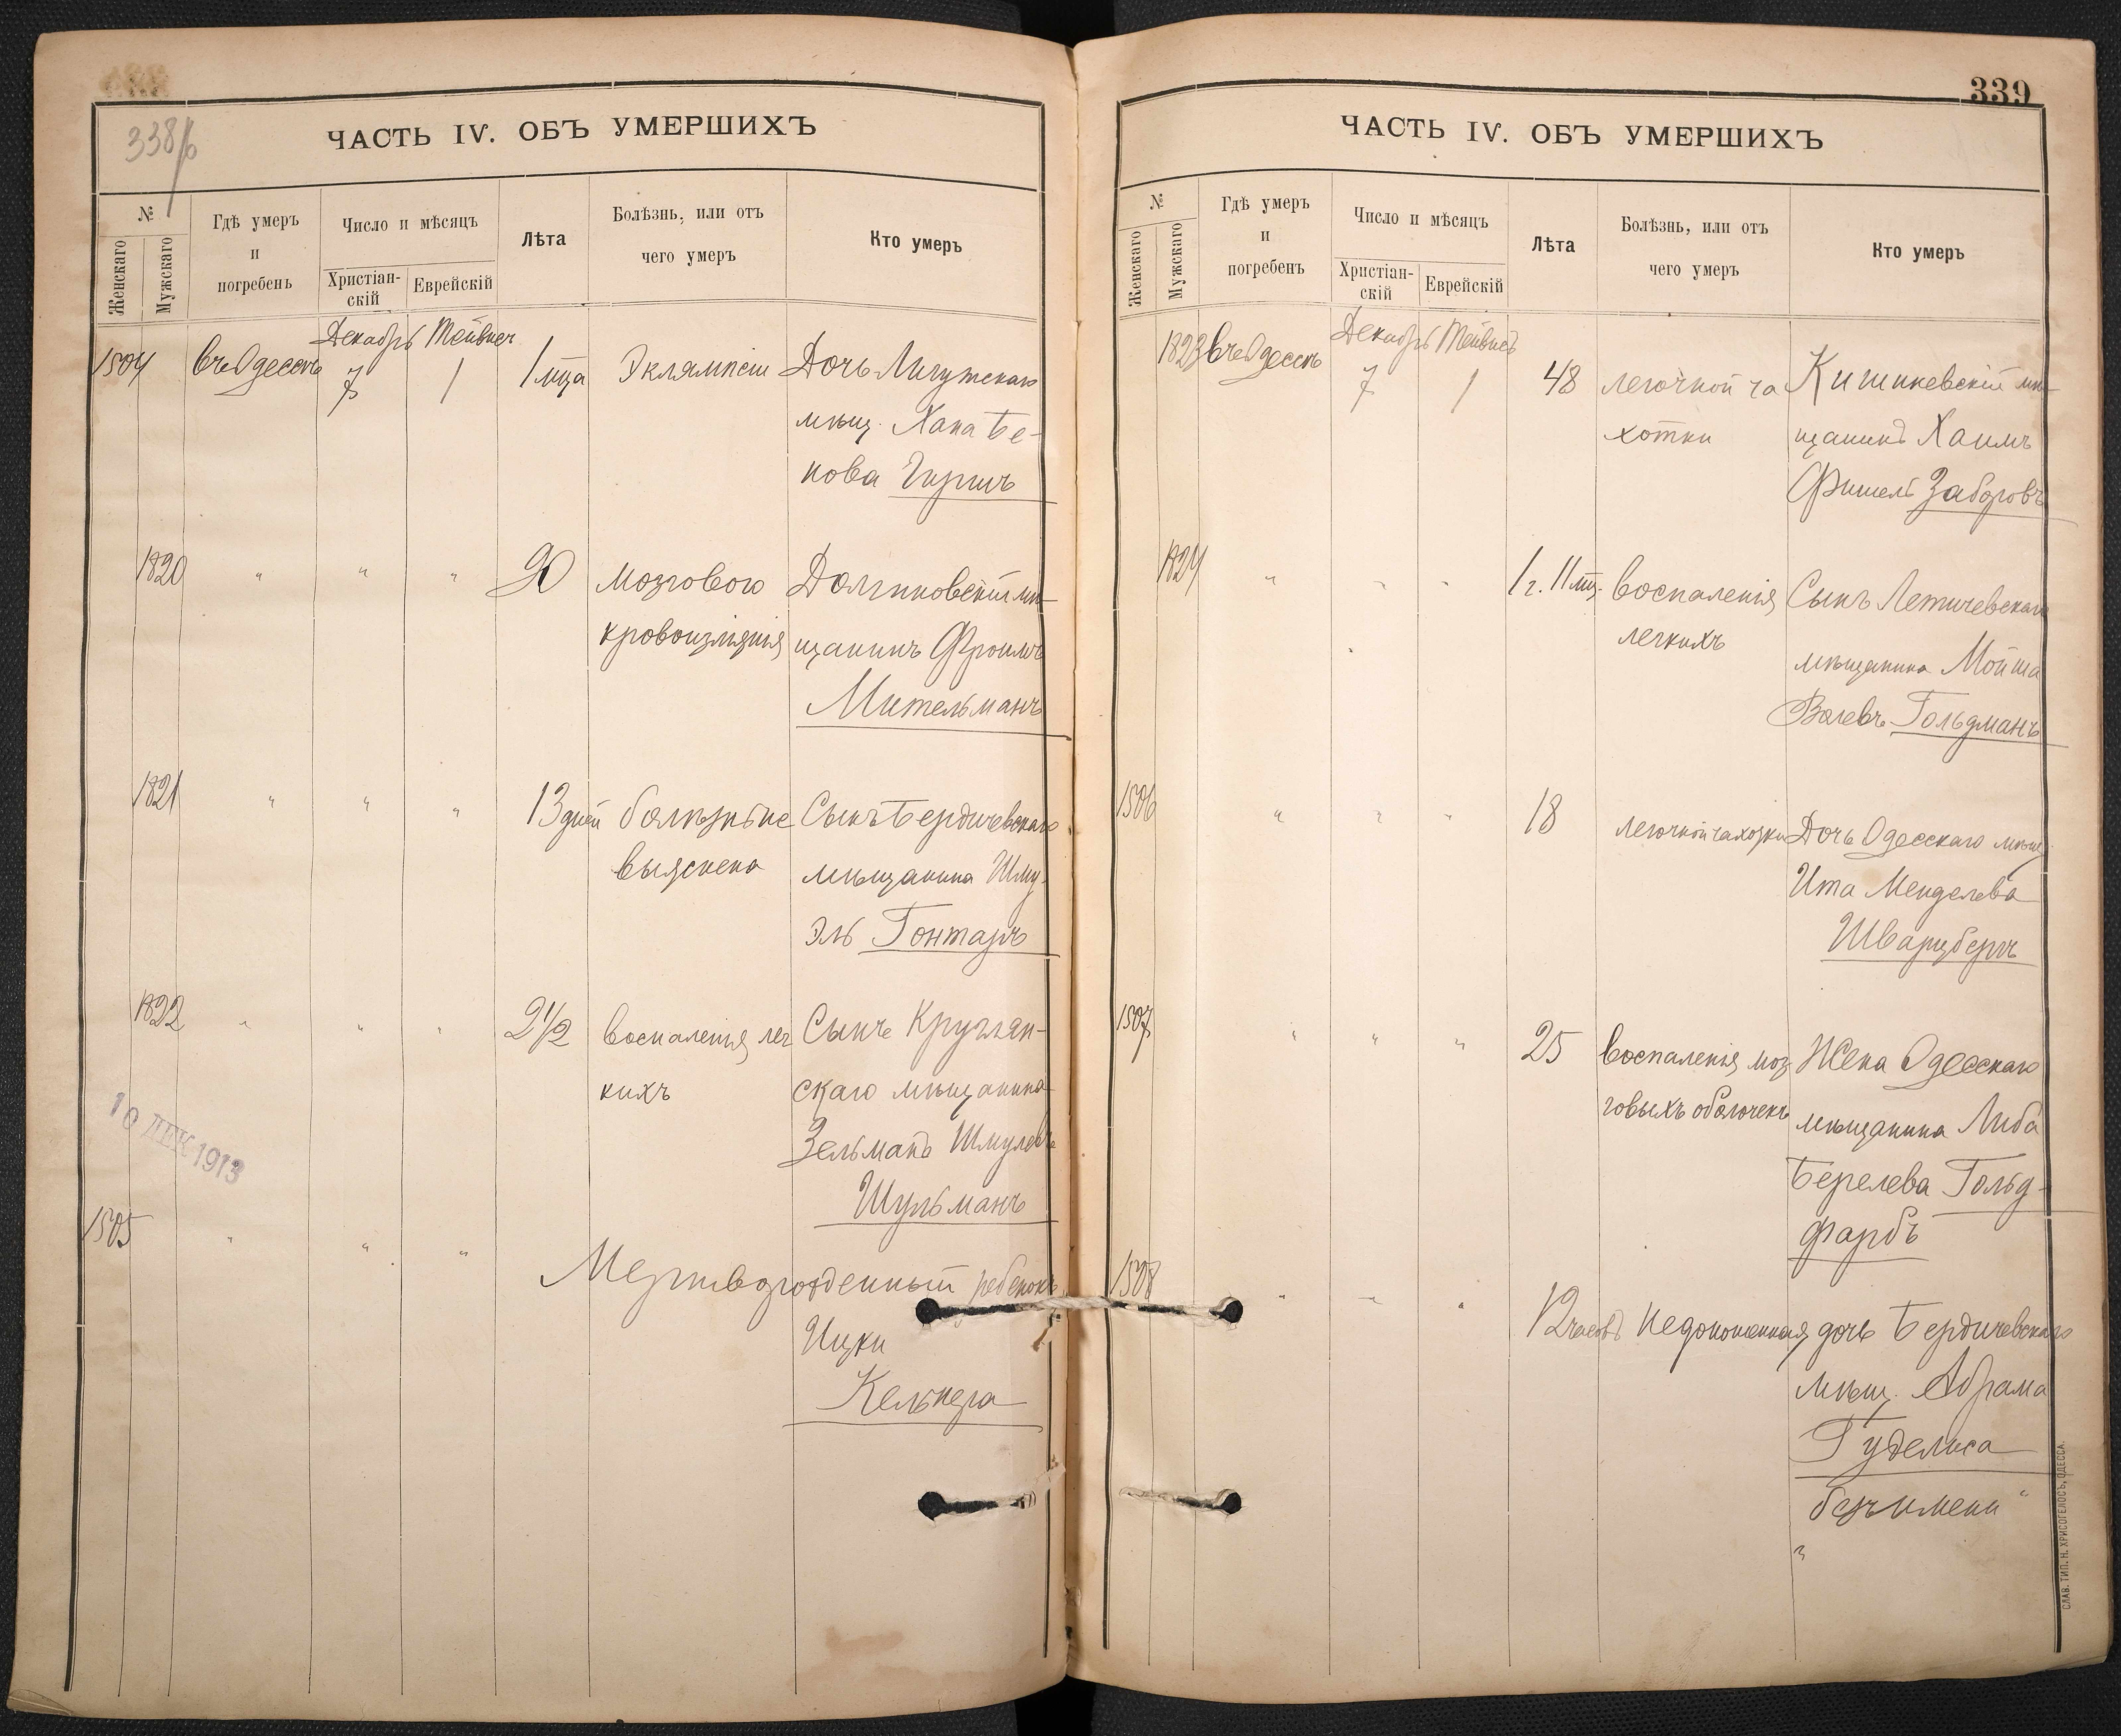 338/б
ЧАСТЬ IV. ОБЪ УМЕРШИХЪ
№
Женскаго
Мужскаго
Гдѣ умеръ
и
погребенъ
Число и мѣсяцъ
Христіан-
скій
Еврейскій
Лѣта
Болѣзнь, или отъ
чего умеръ
Кто умеръ
Декабрь Тейвисъ
1504 въ Одессѣ 7 1 1 мца Эклямпсіи Дочь
мѣщ. Хана Бе-
нова
1820 " " " 90 мозгового Долгиновскій мѣ-
кровоизліянія щанинъ Фроимъ
Мительманъ
1821 " " " 13 дней болѣзнь не Сынъ Бердичевскаго
выяснена мѣщанина Шму-
эль Гонтаръ
1822 " " " 2 1/2 воспаленія лег Сынъ Круглян-
кихъ скаго мѣщанина
Зельманъ Шмулевъ
Шульманъ
10 ДЕК 1913
1505 " " " Мертворожденный ребенокъ
Ицки
Кельнера
339
ЧАСТЬ IV. ОБЪ УМЕРШИХЪ
№
Женскаго
Мужскаго
Гдѣ умеръ
и
погребенъ
Число и мѣсяцъ
Христіан-
скій
Еврейскій
Лѣта
Болѣзнь, или отъ
чего умеръ
Кто умеръ
Декабрь Тейвисъ
1823 въ Одессѣ 7 1 48 легочной ча Кишиневскій мѣ-
хотки щанинъ Хаимъ
Фишель Заборовъ
1824 " " " 1 г. 11 мц. воспаленія Сынъ Летичевскаго
легкихъ мѣщанина Мойша
Волевъ Гольдманъ
1506 " " " 18 легочной чахотки Дочь Одесскаго мѣщ.
Ита Менделева
Шварцбергъ
1507 " " " 25 воспаленія моз Жена Одесскаго
говыхъ оболочекъ мѣщанина Либа
Берелева Гольд-
фарбъ
1508 " " " 12 часовъ недоношенная дочь Бердичевскаго
мѣщ. Абрама
Гуделиса
"безъ имени"
СЛАВ. ТИП. Н. ХРИСОГЕЛОСЪ, ОДЕССА.